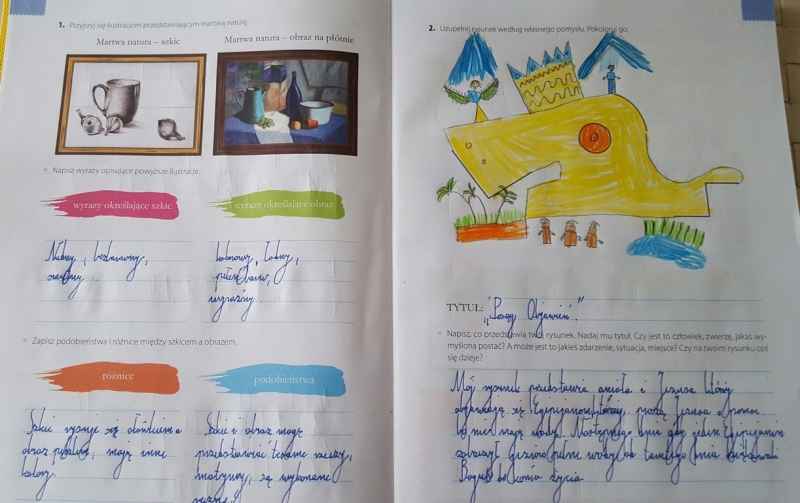 1. Przyjrzyj się ilustracjom przedstawiającym martwą naturę.
Martwa natura – szkic
Martwa natura – obraz na płótnie
Napisz wyrazy opisujące powyższe ilustracje.
wyrazy określające szkic
wyrazy określające obraz
Nudny, bezbarwny,
smutny.
kolorowy, ładny,
pełen barw,
wyraźny.
Zapisz podobieństwa i różnice między szkicem a obrazem.
różnice
podobieństwa
Szkic rysuje się ołówkiem a
obraz pędzlem, mają inne
kolory.
Szkic i obraz mogą
przedstawiać te same rzeczy,
motywy, są wykonane
2. Uzupełnij rysunek według własnego pomysłu. Pokoloruj go.
TYTUŁ: "Objawień."
Napisz, co przedstawia twój rysunek. Nadaj mu tytuł. Czy jest to człowiek, zwierzę, jakaś wy-
myślona postać? A może jest to jakieś zdarzenie, sytuacja, miejsce? Czy na twoim rysunku coś
się dzieje?
Mój rysunek przedstawia anioła i Jezusa który
objawiają się Egipcjanom, którzy proszą Jezusa o pomoc
bo nie mają wody. Następnego dnia gdy jeden Egipcjanin
zobaczył jezioro pełne wody od tamtego dnia
Bogu do końca życia.